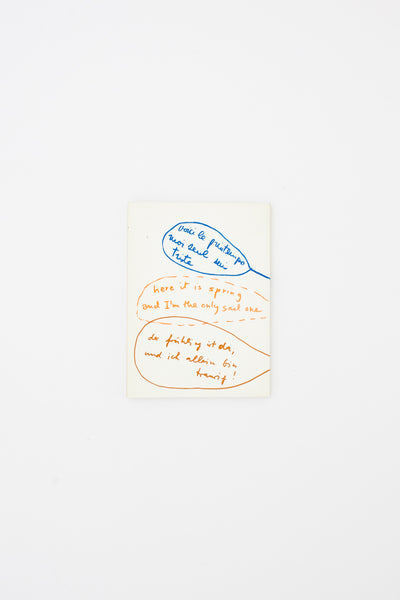 voici le printemps
moi seul suis
triste
here it is spring
and I'm the only sad one
der frühling ist da,
und ich allein bin
traurig!